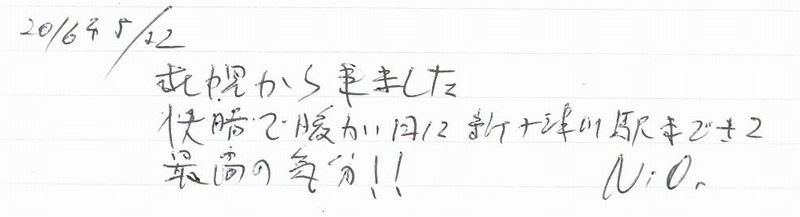 2016年5/22
札幌から来ました
快晴で暖かい日に新十津川駅まできて
最高の気分!!
N.O.